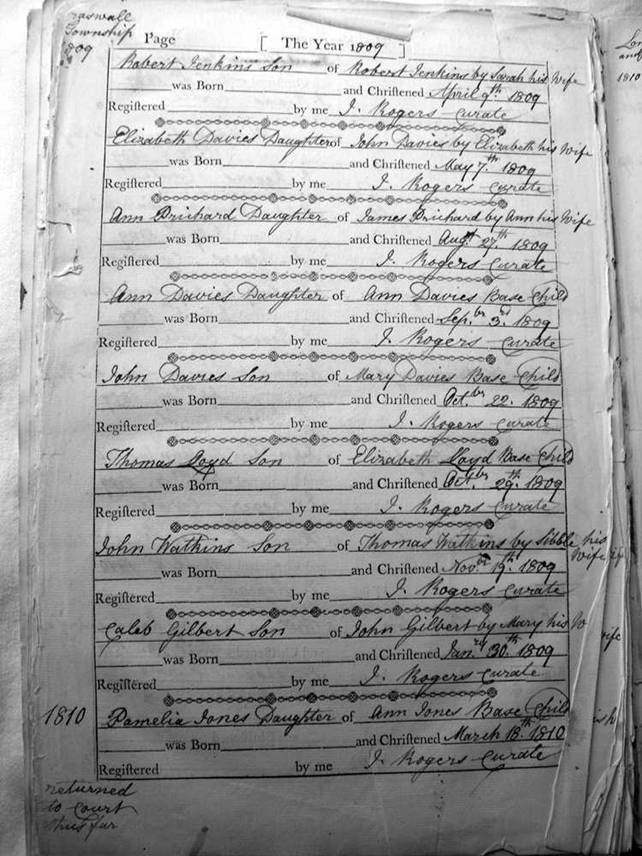 Craswall
Township
1809
Page [ The Year 1809 ]
Robert Jenkins Son of Robert Jenkins by Sarah his Wife
was Born and Chriſtened April 9th 1809
Regiſtered by me J. Rogers Curate
Elizabeth Davies Daughter of John Davies by Elizabeth his Wife
was Born and Chriſtened May 7th 1809
Regiſtered by me J. Rogers Curate
Ann Prichard Daughter of James Prichard by Ann his Wife
was Born and Chriſtened Augst 27th 1809
Regiſtered by me J. Rogers Curate
Ann Davies Daughter of Ann Davies Base Child
was Born and Chriſtened Sep.br 3rd 1809
Regiſtered by me J. Rogers Curate
John Davies Son of Mary Davies Base Child
was Born and Chriſtened Oct.br 22. 1809
Regiſtered by me J. Rogers Curate
Thomas Loyd Son of Elizabeth Lloyd Base Child
was Born and Chriſtened Oct.br 29th 1809
Regiſtered by me J. Rogers Curate
John Watkins Son of Thomas Watkins by Sibble his Wife
was Born and Chriſtened Novbr 19th 1809
Regiſtered by me J. Rogers Curate
Caleb Gilbert Son of John Gilbert by Mary his Wife
was Born and Chriſtened Janry 30th 1809
Regiſtered by me J. Rogers Curate
1810 Pamelia Jones Daughter of Ann Jones Base Child
was Born and Chriſtened March 18th 1810
Regiſtered by me J. Rogers Curate
returned
to Court
thus far
1810